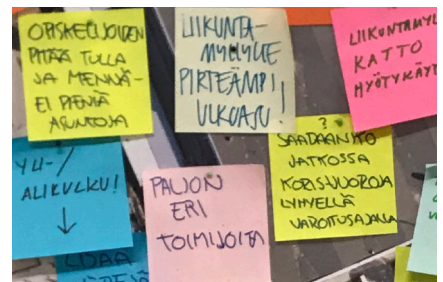 OPISKELIJOIDEN
PITÄÄ TULLA
JA MENNÄ -
EI PIENIÄ
ASUNTOJA
LIIKUNTA-
MYLLYLLE
PIRTEÄMPI
ULKOASU!
LIIKUNTAMYL
KATTO
HYÖTYKÄYT
YLI-/
ALIKULKU!
↓
LISÄÄ
PALJON
ERI
TOIMIJOITA
?
SAADAANKO
JATKOSSA
KORISVUOROJA
LYHYELLÄ
VAROITUSAJALLA